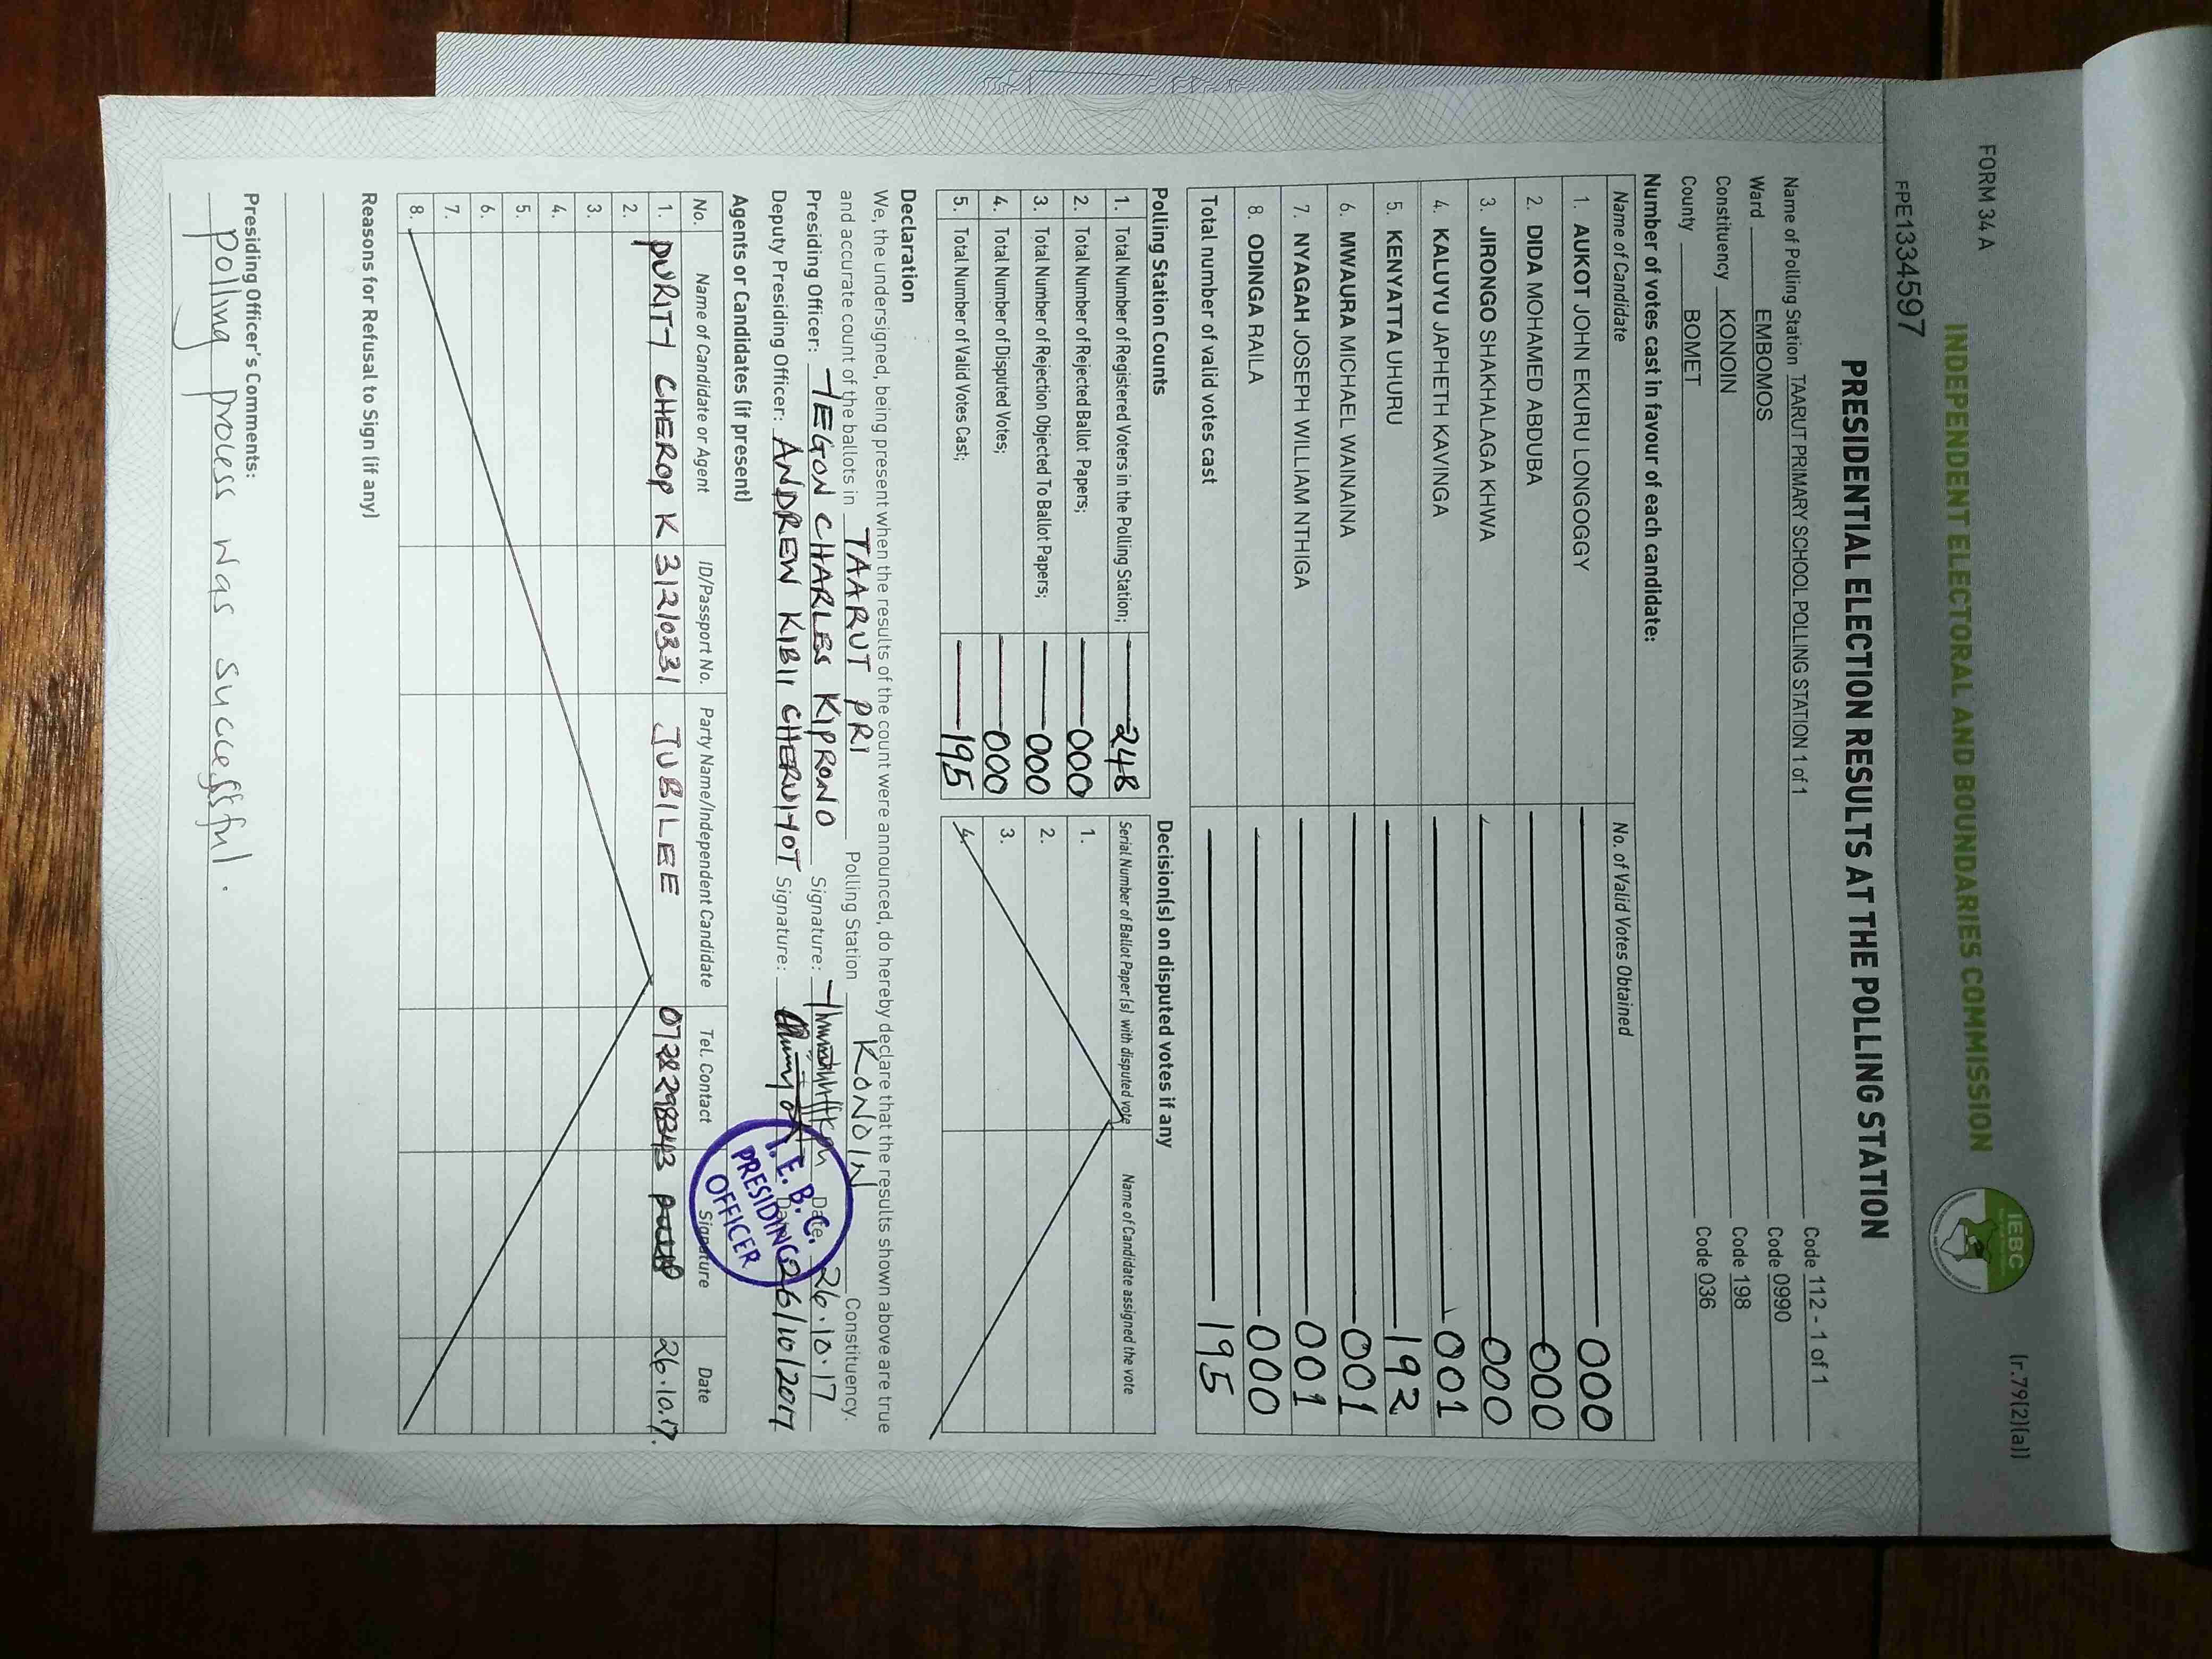 FORM 34 A
(r.79(2)(a))
INDEPENDENT ELECTORAL AND BOUNDARIES COMMISSION
IEBC
FPE1334597
PRESIDENTIAL ELECTION RESULTS AT THE POLLING STATION
Name of Polling Station TAARUT PRIMARY SCHOOL POLLING STATION 1 of 1 Code 112 - 1 of 1
Ward EMBOMOS Code 0990
Constituency KONOIN Code 198
County BOMET Code 036
Number of votes cast in favour of each candidate:
Name of Candidate No. of Valid Votes Obtained
1. AUKOT JOHN EKURU LONGOGGY 000
2. DIDA MOHAMED ABDUBA 000
3. JIRONGO SHAKHALAGA KHWA 000
4. KALUYU JAPHETH KAVINGA 001
5. KENYATTA UHURU 192
6. MWAURA MICHAEL WAINAINA 001
7. NYAGAH JOSEPH WILLIAM NTHIGA 001
8. ODINGA RAILA 000
Total number of valid votes cast 195
Polling Station Counts
1. Total Number of Registered Voters in the Polling Station; 248
2. Total Number of Rejected Ballot Papers; 000
3. Total Number of Rejection Objected To Ballot Papers; 000
4. Total Number of Disputed Votes; 000
5. Total Number of Valid Votes Cast; 195
Decision(s) on disputed votes if any
Serial Number of Ballot Paper (s) with disputed vote Name of Candidate assigned the vote
1.
2.
3.
4.
Declaration
We, the undersigned, being present when the results of the count were announced, do hereby declare that the results shown above are true
and accurate count of the ballots in TAARUT PRI Polling Station KONOIN Constituency.
Presiding Officer: TEGON CHARLES KIPRONO Signature: Date 26.10.17
Deputy Presiding Officer: ANDREW KIBII CHERUIYOT Signature: Date 26/10/2017
I. E. B. C.
PRESIDING
OFFICER
Agents or Candidates (if present)
No. Name of Candidate or Agent ID/Passport No. Party Name/Independent Candidate Tel. Contact Signature Date
1. PURITY CHEROP K 31210331 JUBILEE 0728298343 26.10.17.
2.
3.
4.
5.
6.
7.
8.
Reasons for Refusal to Sign (if any)
Presiding Officer's Comments:
polling process was successful.